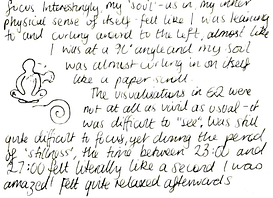 focus Interestingly, my "soul" - as in, my inner
physical sense of itself - felt like I was leaning
to and curling around to the left, almost like
I was at a 30° angle and my soul
was almost curling in on itself
like a paper scroll.
The visualisations in 62 were
not at all as vivid as usual - it
was difficult to "see". Was still
quite difficult to focus, yet during the period
of 'stillness', the time between 23:00 and
27:00 felt literally like a second I was
amazed I felt quite relaxed afterwards